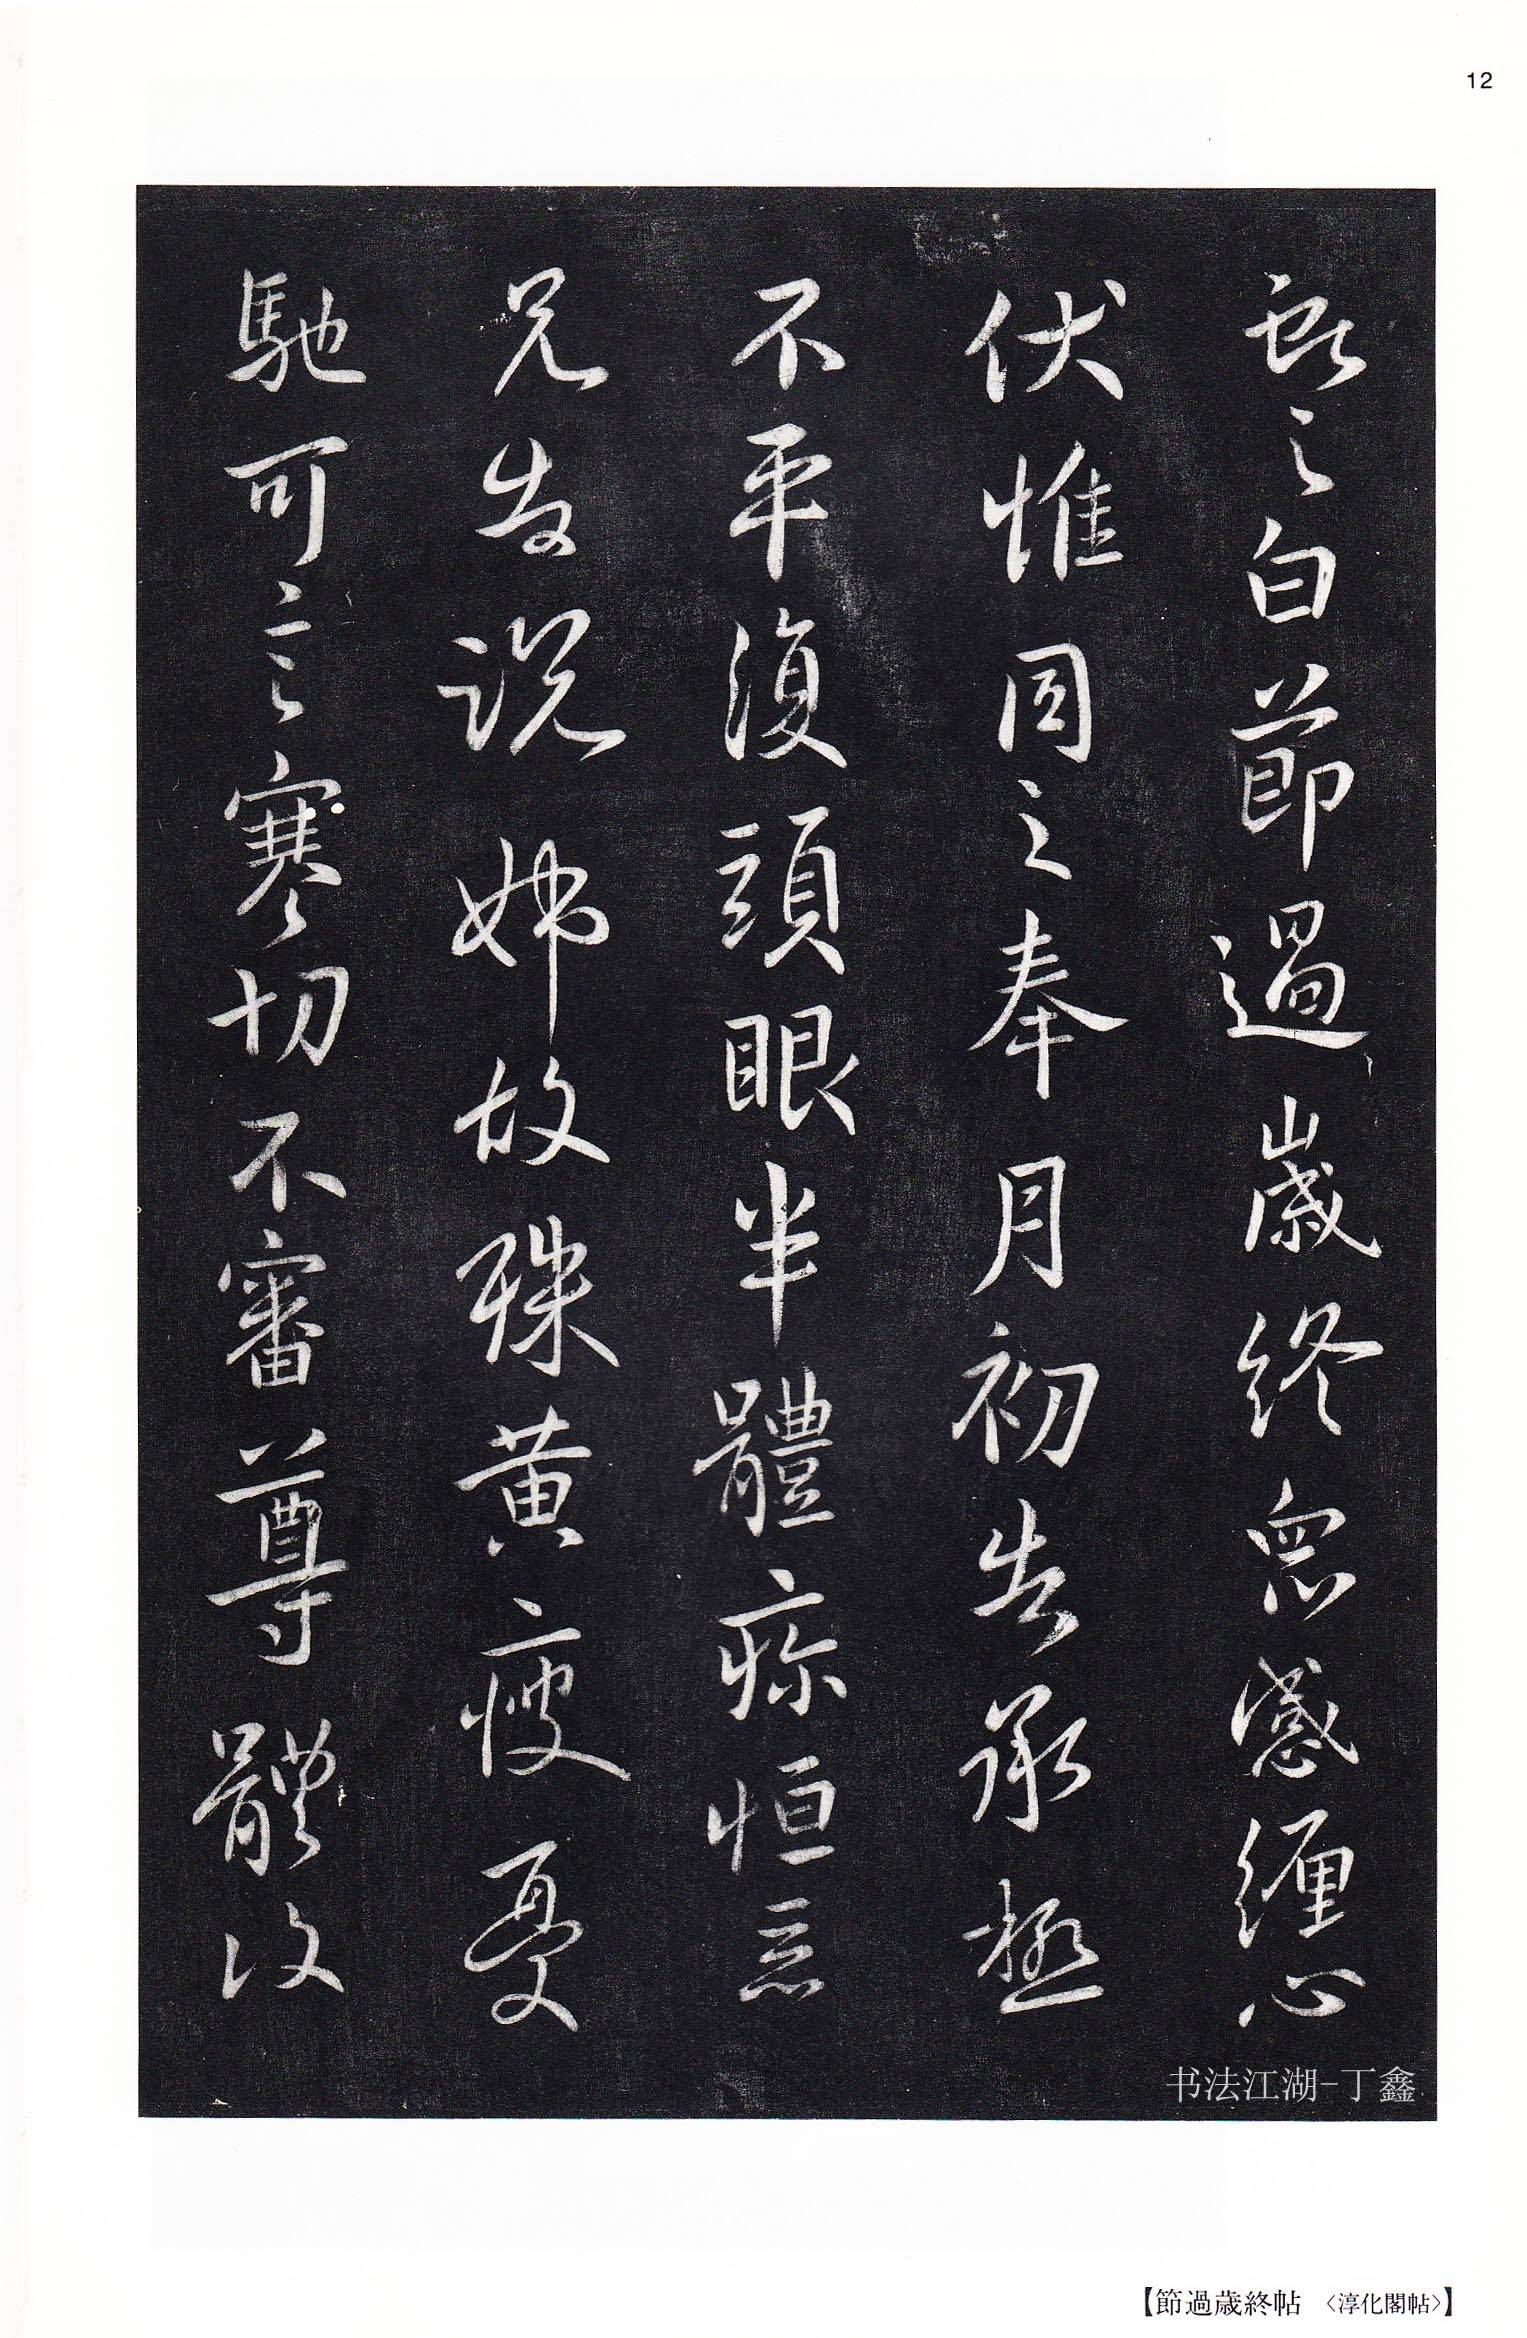 12
献之白節過歲終衆感纏心
伏惟同之奉月初告承極
不平復頭眼半體疹恒惡
兄告說姊故殊黄瘦憂
馳可言寒切不審尊體復
书法江湖-丁鑫
【節過歲終帖 〈淳化閣帖〉】